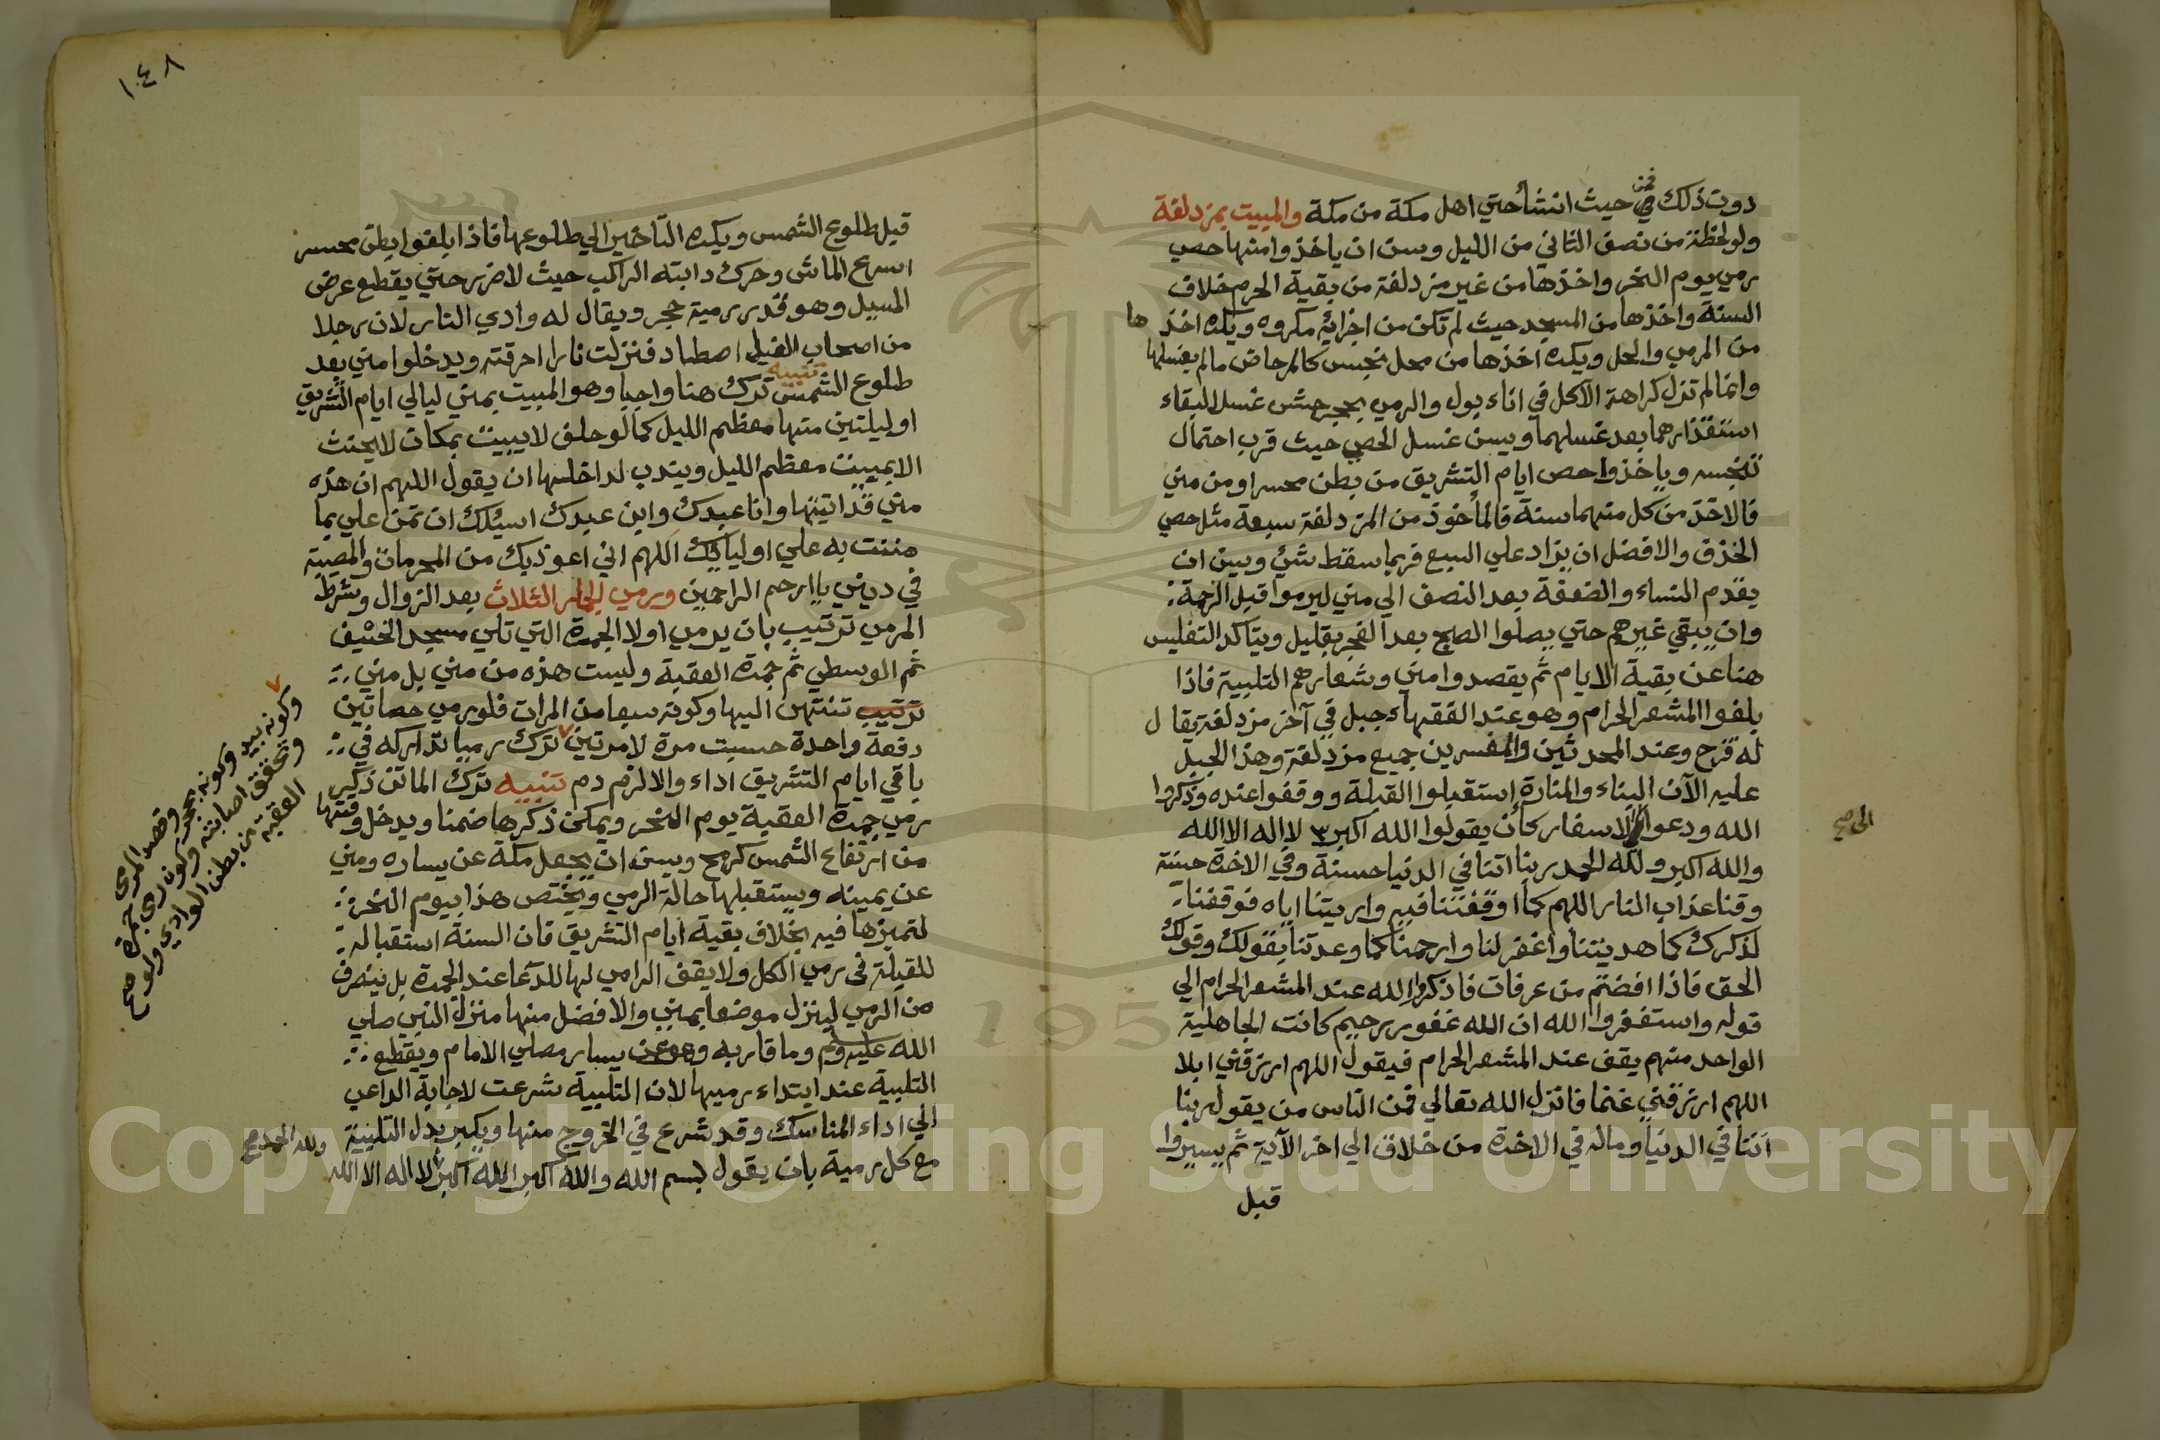 دون ذلك فمن حيث انشأ حتي اهل مكة من مكة والمبيت بمزدلفة
ولو لحظة من نصف الثاني من الليل ويسن ان ياخذوا منها حصي
رمي يوم النحر واخذها من غير مزدلفة من بقية الحرم خلاف
السنة واخذها من المسجد حيث لم تكن من اجزائه مكروه ويكره اخذها
من المرمي والحل ويكره اخذها من محل نجس كالمرحاض ما لم يغسلها
وانما لم تزل كراهة الاكل في اناء بول والرمي بحجر حش غسلا لبقاء
استقذارهما بعد غسلهما ويسن غسل الحصي حيث قرب احتمال
تنجسه وياخذوا حصى ايام التشريق من بطن محسر او من مني
فالاخذ من كل منهما سنة فالمأخوذ من المزدلفة سبعة مثل حصي
الخذف والافضل ان يزاد علي السبع فربما سقط شئ ويسن ان
يقدم النساء والضعفة بعد النصف الي مني ليرموا قبل الزحمة
وان يبقي غيرهم حتي يصلوا الصبح بعد الفجر بقليل ويتاكد التغليس
هنا عن بقية الايام ثم يقصدوا مني وشعارهم التلبية فاذا
بلغوا المشعر الحرام وهو عند الفقهاء جبل في آخر مزدلفة يقال
له قزح وعند المحدثين والمفسرين جميع مزدلفة وهذا الجبل
عليه الآن البناء والمنارة استقبلوا القبلة ووقفوا عنده وذكروا
الله ودعوا الاسفار كان يقولوا الله اكبر ٣ لا اله الا الله
الى صح
والله اكبر ولله الحمد ربنا اتنا في الدنيا حسنة وفي الاخرة حسنة
وقنا عذاب النار اللهم كما اوقفتنا فيه واريتنا اياه فوفقنا
لذكرك كما هديتنا واغفر لنا وارحمنا كما وعدتنا بقولك وقولك
الحق فاذا افضتم من عرفات فاذكروا الله عند المشعر الحرام الي
قوله واستغفروا الله ان الله غفور رحيم كانت الجاهلية
الواحد منهم يقف عند المشعر الحرام فيقول اللهم ارزقني ابلا
اللهم ارزقني غنما فانزل الله تعالي فمن الناس من يقول ربنا
آتنا في الدنيا وماله في الاخرة من خلاق الي اخر الآية ثم يسيروا
قبل
١٤٨
قبل طلوع الشمس ويكره التاخير الي طلوعها فاذا بلغوا بطن محسر
اسرع الماش وحرك دابته الراكب حيث لا ضرر حتي يقطع عرض
المسيل وهو قدر رمية حجر ويقال له وادي النار لان رجلا
من اصحاب الفيل اصطاد فنزلت نارا احرقته ويدخلوا مني بعد
طلوع الشمس تنبيه ترك هنا واجبا وهو المبيت بمني ليالي ايام التشريق
او ليلتين منها معظم الليل كما لو حلف لا يبيت بمكان لا يحنث
الا بمبيت معظم الليل ويندب لداخلها ان يقول اللهم ان هذه
مني قد اتيتها وانا عبدك وابن عبدك اسئلك ان تمن علي بما
مننت به علي اوليائك اللهم اني اعوذ بك من الحرمان والمصيبة
في ديني يا ارحم الراحمين ورمي الجمار الثلاث بعد الزوال وشرط
المرمي ترتيب بان يرمي اولا الجمرة التي تلي مسجد الخيف
ثم الوسطي ثم جمرة العقبة وليست هذه من مني بل مني
ترتيب تنتهي اليها وكونه سبعا من المرات فلو رمي حصاتين
دفعة واحدة حسبت مرة لا مرتين ترك رميا تداركه في
باقي ايام التشريق اداء والا لزم دم تنبيه ترك الماتن ذكر
رمي جمرة العقبة يوم النحر ويمكن ذكرها ضمنا ويدخل وقتها
من ارتفاع الشمس كرمح ويسن ان يجعل مكة عن يساره ومني
عن يمينه ويستقبلها حالة الرمي ويختص هذا بيوم النحر
لتميزها فيه بخلاف بقية ايام التشريق فان السنة استقباله
للقبلة في رمي الكل ولا يقف الرامي لها للدعا عند الجمرة بل ينصرف
من الرمي لينزل موضعا بمني والافضل منها منزل النبي صلي
الله عليه وسلم وما قاربه وهو عن يسار مصلي الامام ويقطع
التلبية عند ابتداء رميها لان التلبية شرعت لاجابة الداعي
الي اداء المناسك وقد شرع في الخروج منها ويكبر بدل التلبية
مع كل رمية بان يقول بسم الله والله اكبر الله اكبر لا اله الا الله
ولله الحمد صح
وكونه بيد وكونه بحجر وقصد المرمى
وتحقق اصابته وكون رمي جمرة
العقبة من بطن الوادي صح
Copyright © King Saud University
195